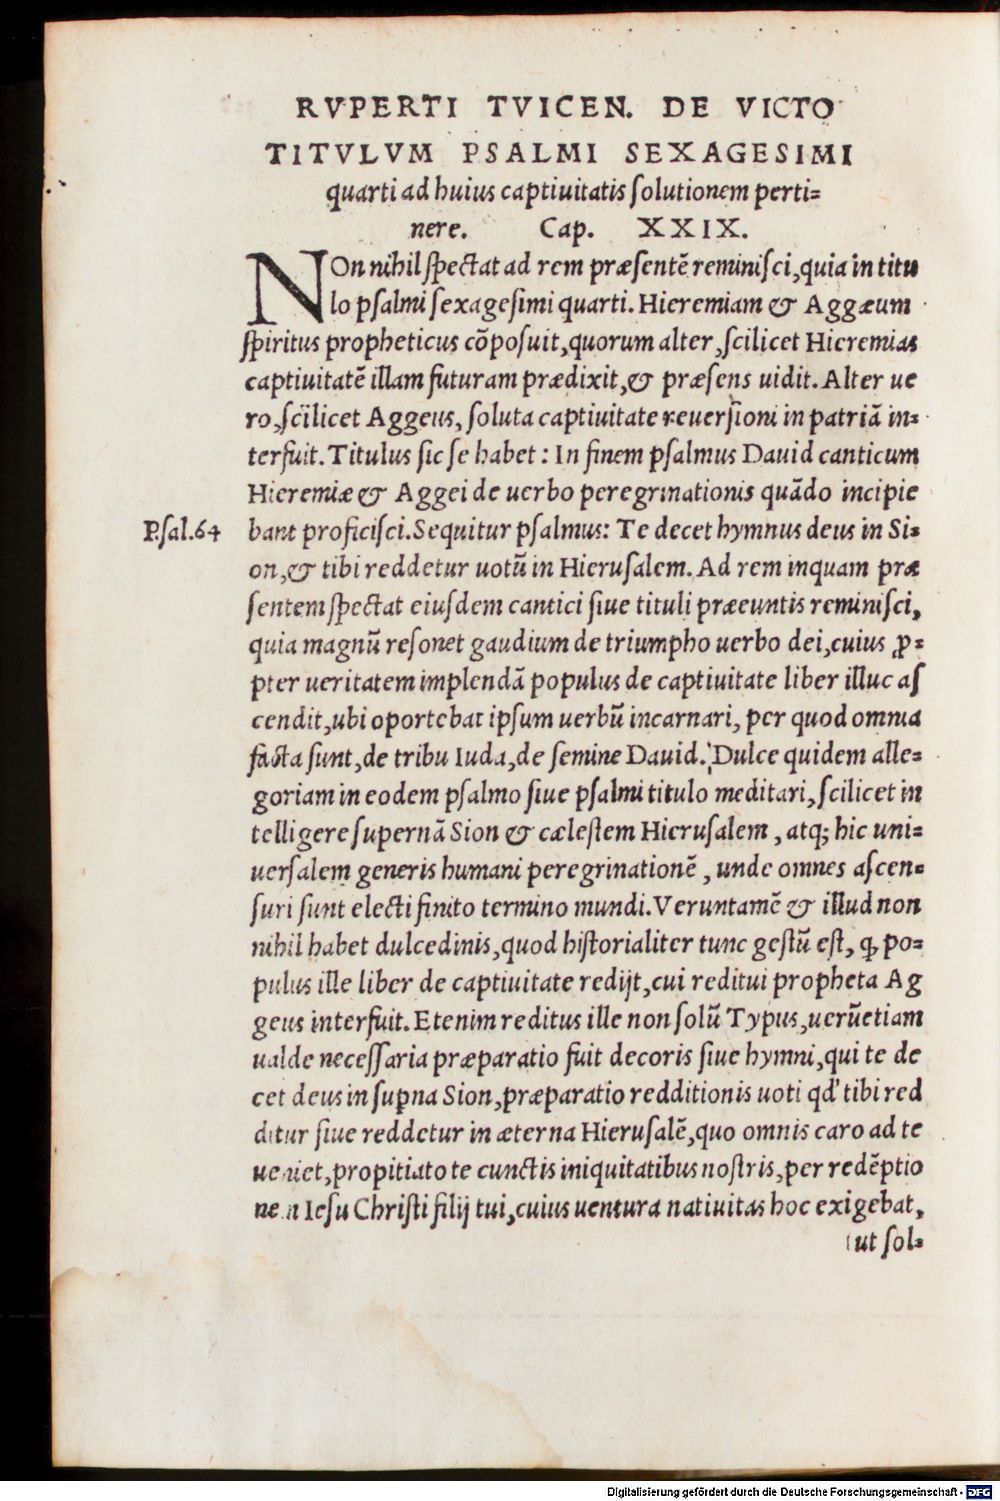 RVPERTI TVICEN. DE VICTO
TITVLVM PSALMI SEXAGESIMI
quarti ad huius captiuitatis ſolutionem perti=
nere. Cap. XXIX.
NOn nihil ſpectat ad rem præſentē reminiſci, quia in titu
lo pſalmi ſexageſimi quarti. Hieremiam & Aggæum
ſpiritus propheticus cōpoſuit, quorum alter, ſcilicet Hieremias
captiuitatē illam futuram prædixit, & præſens uidit. Alter ue
ro, ſcilicet Aggeus, ſoluta captiuitate reuerſioni in patriā in=
terfuit. Titulus ſic ſe habet: In finem pſalmus Dauid canticum
Hieremiæ & Aggei de uerbo peregrinationis quādo incipie
Pſal.64
bant proficiſci. Sequitur pſalmus: Te decet hymnus deus in Si=
on, & tibi reddetur uotū in Hieruſalem. Ad rem inquam præ
ſentem ſpectat eiuſdem cantici ſiue tituli præeuntis reminiſci,
quia magnū reſonet gaudium de triumpho uerbo dei, cuius ꝓ=
pter ueritatem implendā populus de captiuitate liber illuc aſ
cendit, ubi oportebat ipſum uerbū incarnari, per quod omnia
facta ſunt, de tribu Iuda, de ſemine Dauid. Dulce quidem alle=
goriam in eodem pſalmo ſiue pſalmi titulo meditari, ſcilicet in
telligere ſupernā Sion & cæleſtem Hieruſalem, atq; hic uni=
uerſalem generis humani peregrinationē, unde omnes aſcen=
ſuri ſunt electi finito termino mundi. Veruntamē & illud non
nihil habet dulcedinis, quod hiſtorialiter tunc geſtū eſt, ꝙ po=
pulus ille liber de captiuitate redijt, cui reditui propheta Ag
geus interfuit. Etenim reditus ille non ſolū Typus, uerūetiam
ualde neceſſaria præparatio fuit decoris ſiue hymni, qui te de
cet deus in ſuꝑna Sion, præparatio redditionis uoti qd' tibi red
ditur ſiue reddetur in æterna Hieruſalē, quo omnis caro ad te
ueniet, propitiato te cunctis iniquitatibus noſtris, per redēptio
nem Ieſu Chriſti filij tui, cuius uentura natiuitas hoc exigebat,
ut ſol=
Digitalisierung gefördert durch die Deutsche Forschungsgemeinschaft - DFG